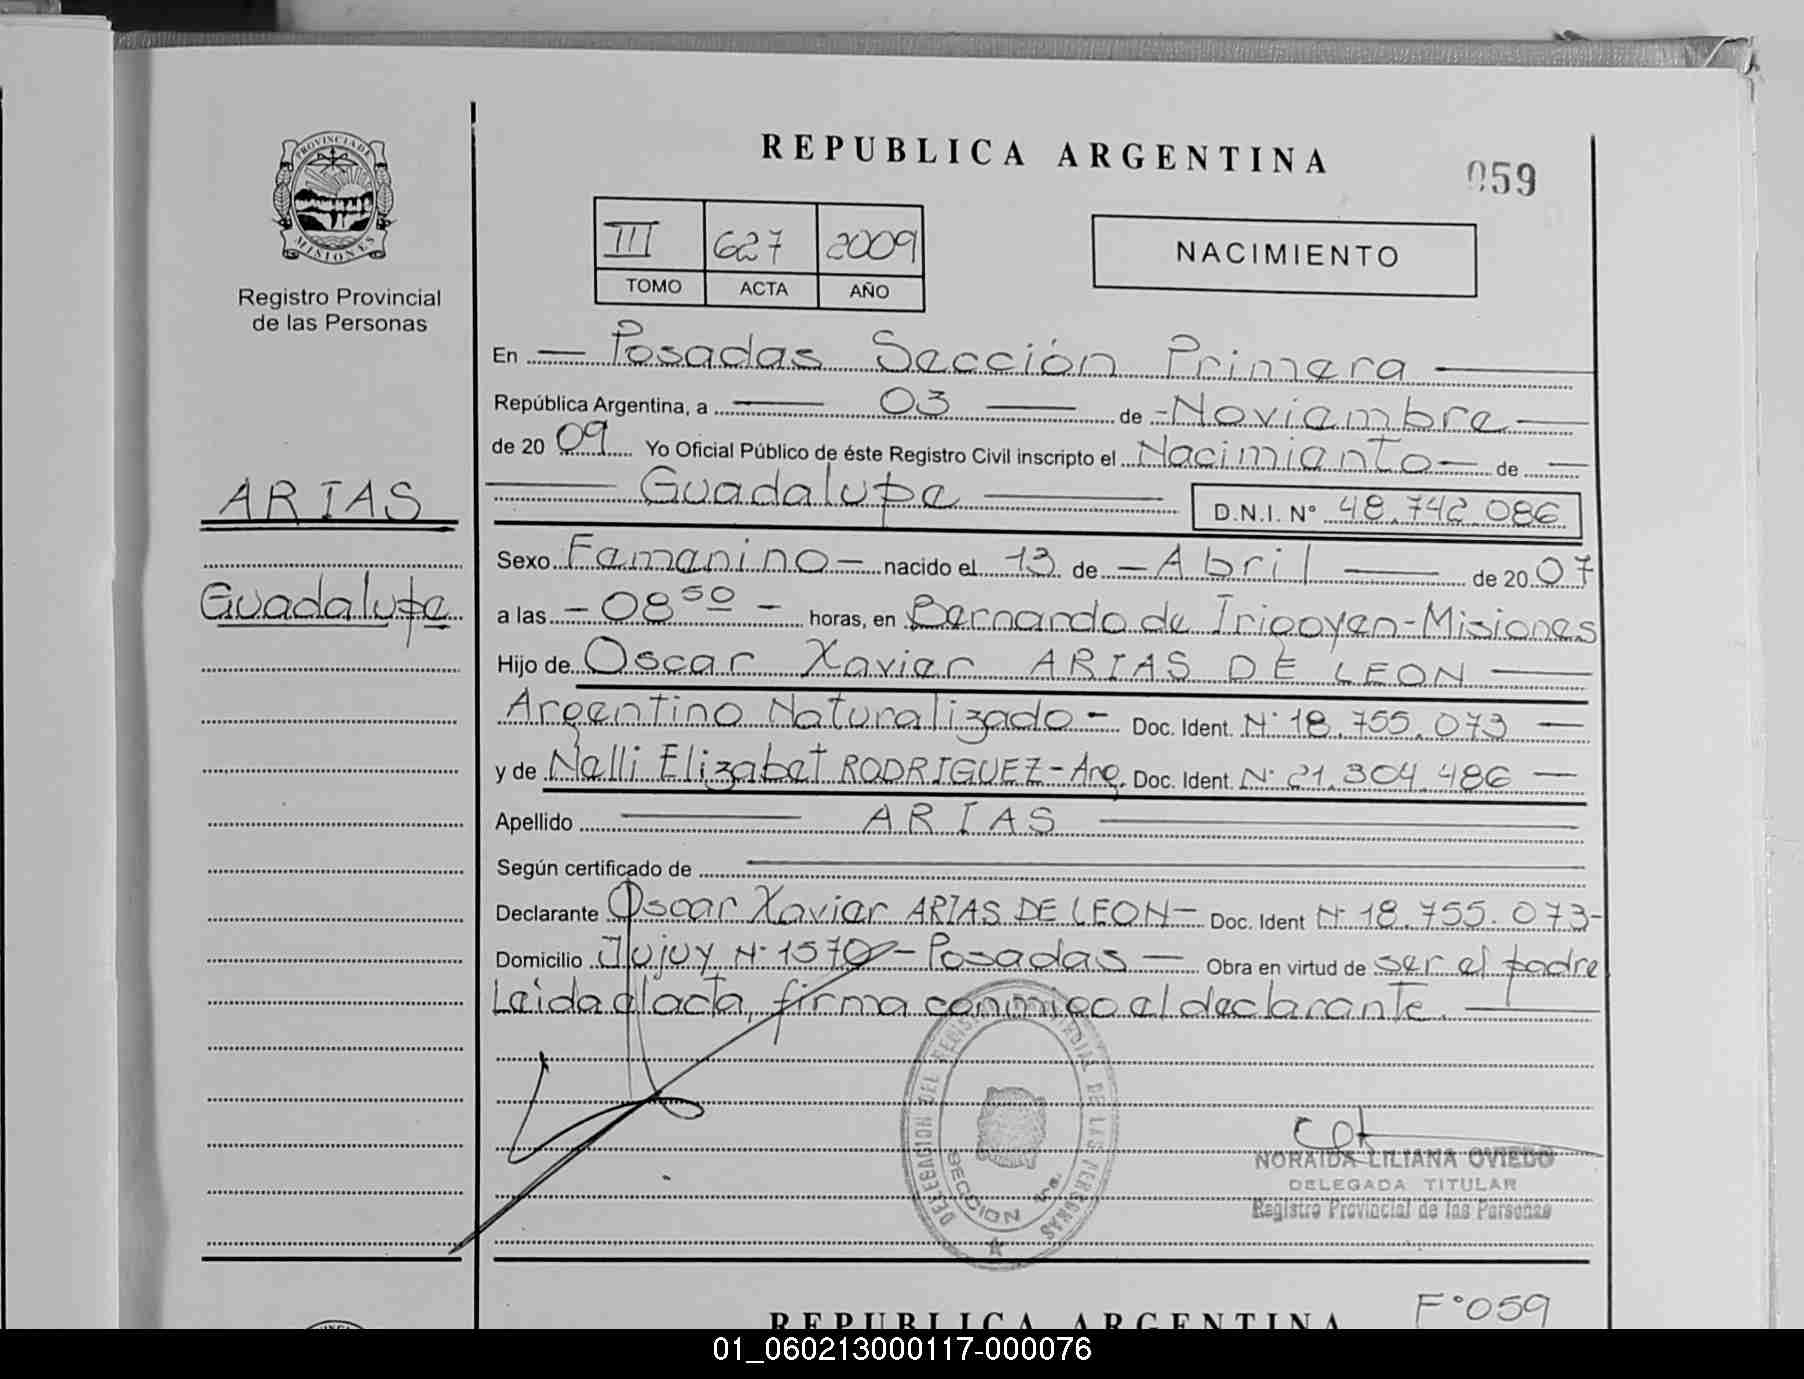 PROVINCIA DE
MISIONES
Registro Provincial
de las Personas
ARIAS
Guadalupe
REPUBLICA ARGENTINA
059
III 627 2009
TOMO ACTA AÑO
NACIMIENTO
En Posadas Sección Primera
República Argentina, a 03 de Noviembre
de 2009 Yo Oficial Público de éste Registro Civil inscripto el Nacimiento de
Guadalupe D.N.I. N° 48.742.086
Sexo Femenino nacido el 13 de Abril de 2007
a las 08 50 horas, en Bernardo de Irigoyen-Misiones
Hijo de Oscar Xavier ARIAS DE LEON
Argentino Naturalizado Doc. Ident. N° 18.755.073
y de Nelli Elizabet RODRIGUEZ-Arg. Doc. Ident. N° 21.304.486
Apellido ARIAS
Según certificado de
Declarante Oscar Xavier ARIAS DE LEON Doc. Ident N° 18.755.073
Domicilio Jujuy N° 1570-Posadas Obra en virtud de ser el padre
Leida el acta, firma conmigo el declarante.
DELEGACION DEL REGISTRO PROVINCIAL DE LAS PERSONAS
SECCION 1ra.
NORAIDA LILIANA OVIEDO
DELEGADA TITULAR
Registro Provincial de las Personas
F°059
REPUBLICA ARGENTINA
01_060213000117-000076